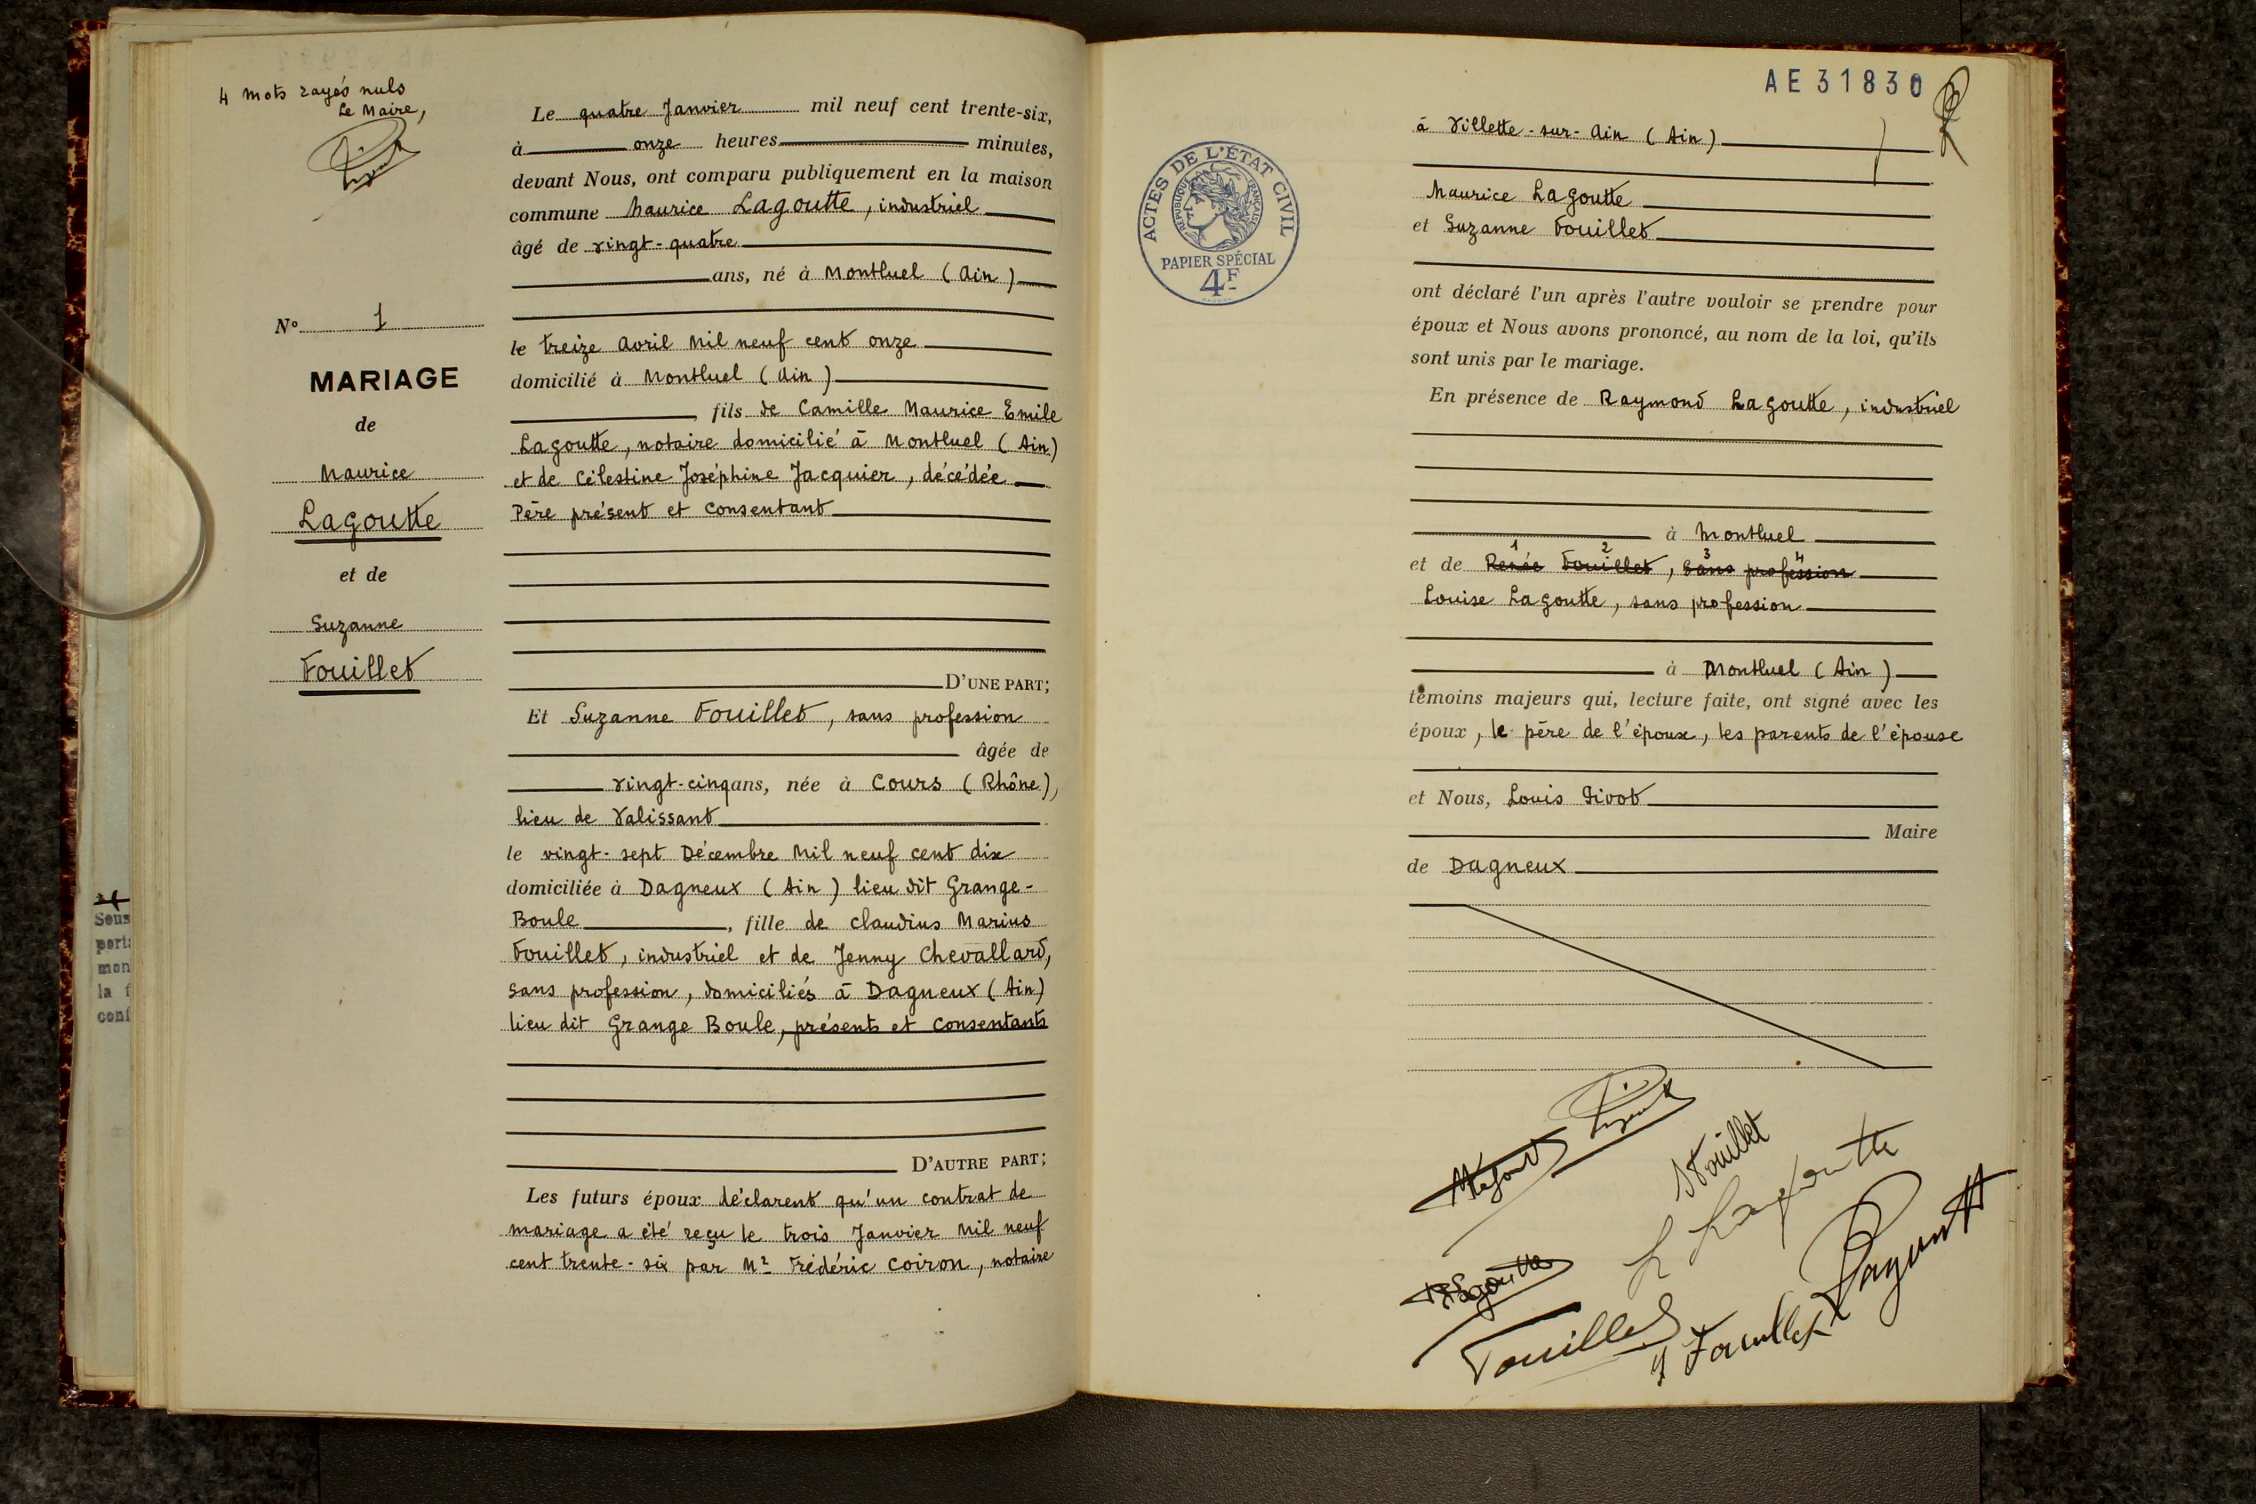 4 mots rayés nuls
Le Maire,
N° 1
MARIAGE
de
Maurice
Lagoutte
et de
Suzanne
Fouillet
Le quatre Janvier mil neuf cent trente-six,
à onze heures minutes,
devant Nous, ont comparu publiquement en la maison
commune Maurice Lagoutte, industriel
âgé de vingt-quatre
ans, né à Montluel (Ain)
le treize Avril Mil neuf cent onze
domicilié à Montluel (Ain)
fils de Camille Maurice Emile
Lagoutte, notaire domicilié à Montluel (Ain)
et de Célestine Joséphine Jacquier, décédée
Père présent et consentant
D'UNE PART;
Et Suzanne Fouillet, sans profession
âgée de
vingt-cinq ans, née à Cours (Rhône),
lieu de Valissant
le vingt-sept Décembre Mil neuf cent dix
domiciliée à Dagneux (Ain) lieu dit Grange-
Boule, fille de Claudius Marius
Fouillet, industriel et de Jenny Chevallard,
sans profession, domiciliés à Dagneux (Ain)
lieu dit Grange Boule, présents et consentants
D'AUTRE PART;
Les futurs époux déclarent qu'un contrat de
mariage a été reçu le trois Janvier Mil neuf
cent trente-six par Me Frédéric Coiron, notaire
Sous
la f
conf
AE 31830
ACTES DE L'ÉTAT CIVIL
RÉPUBLIQUE FRANÇAISE
PAPIER SPÉCIAL
4F
à Villette-sur-Ain (Ain)
Maurice Lagoutte
et Suzanne Fouillet
ont déclaré l'un après l'autre vouloir se prendre pour
époux et Nous avons prononcé, au nom de la loi, qu'ils
sont unis par le mariage.
En présence de Raymond Lagoutte, industriel
à Montluel
1 2 3 4
et de Renée Fouillet, sans profession
Louise Lagoutte, sans profession
à Montluel (Ain)
témoins majeurs qui, lecture faite, ont signé avec les
époux, le père de l'époux, les parents de l'épouse
et Nous, Louis Pivot
Maire
de Dagneux
SFouillet
L Lagoutte
RLagoutte
Fouillet
J Fouillet
Lagoutte